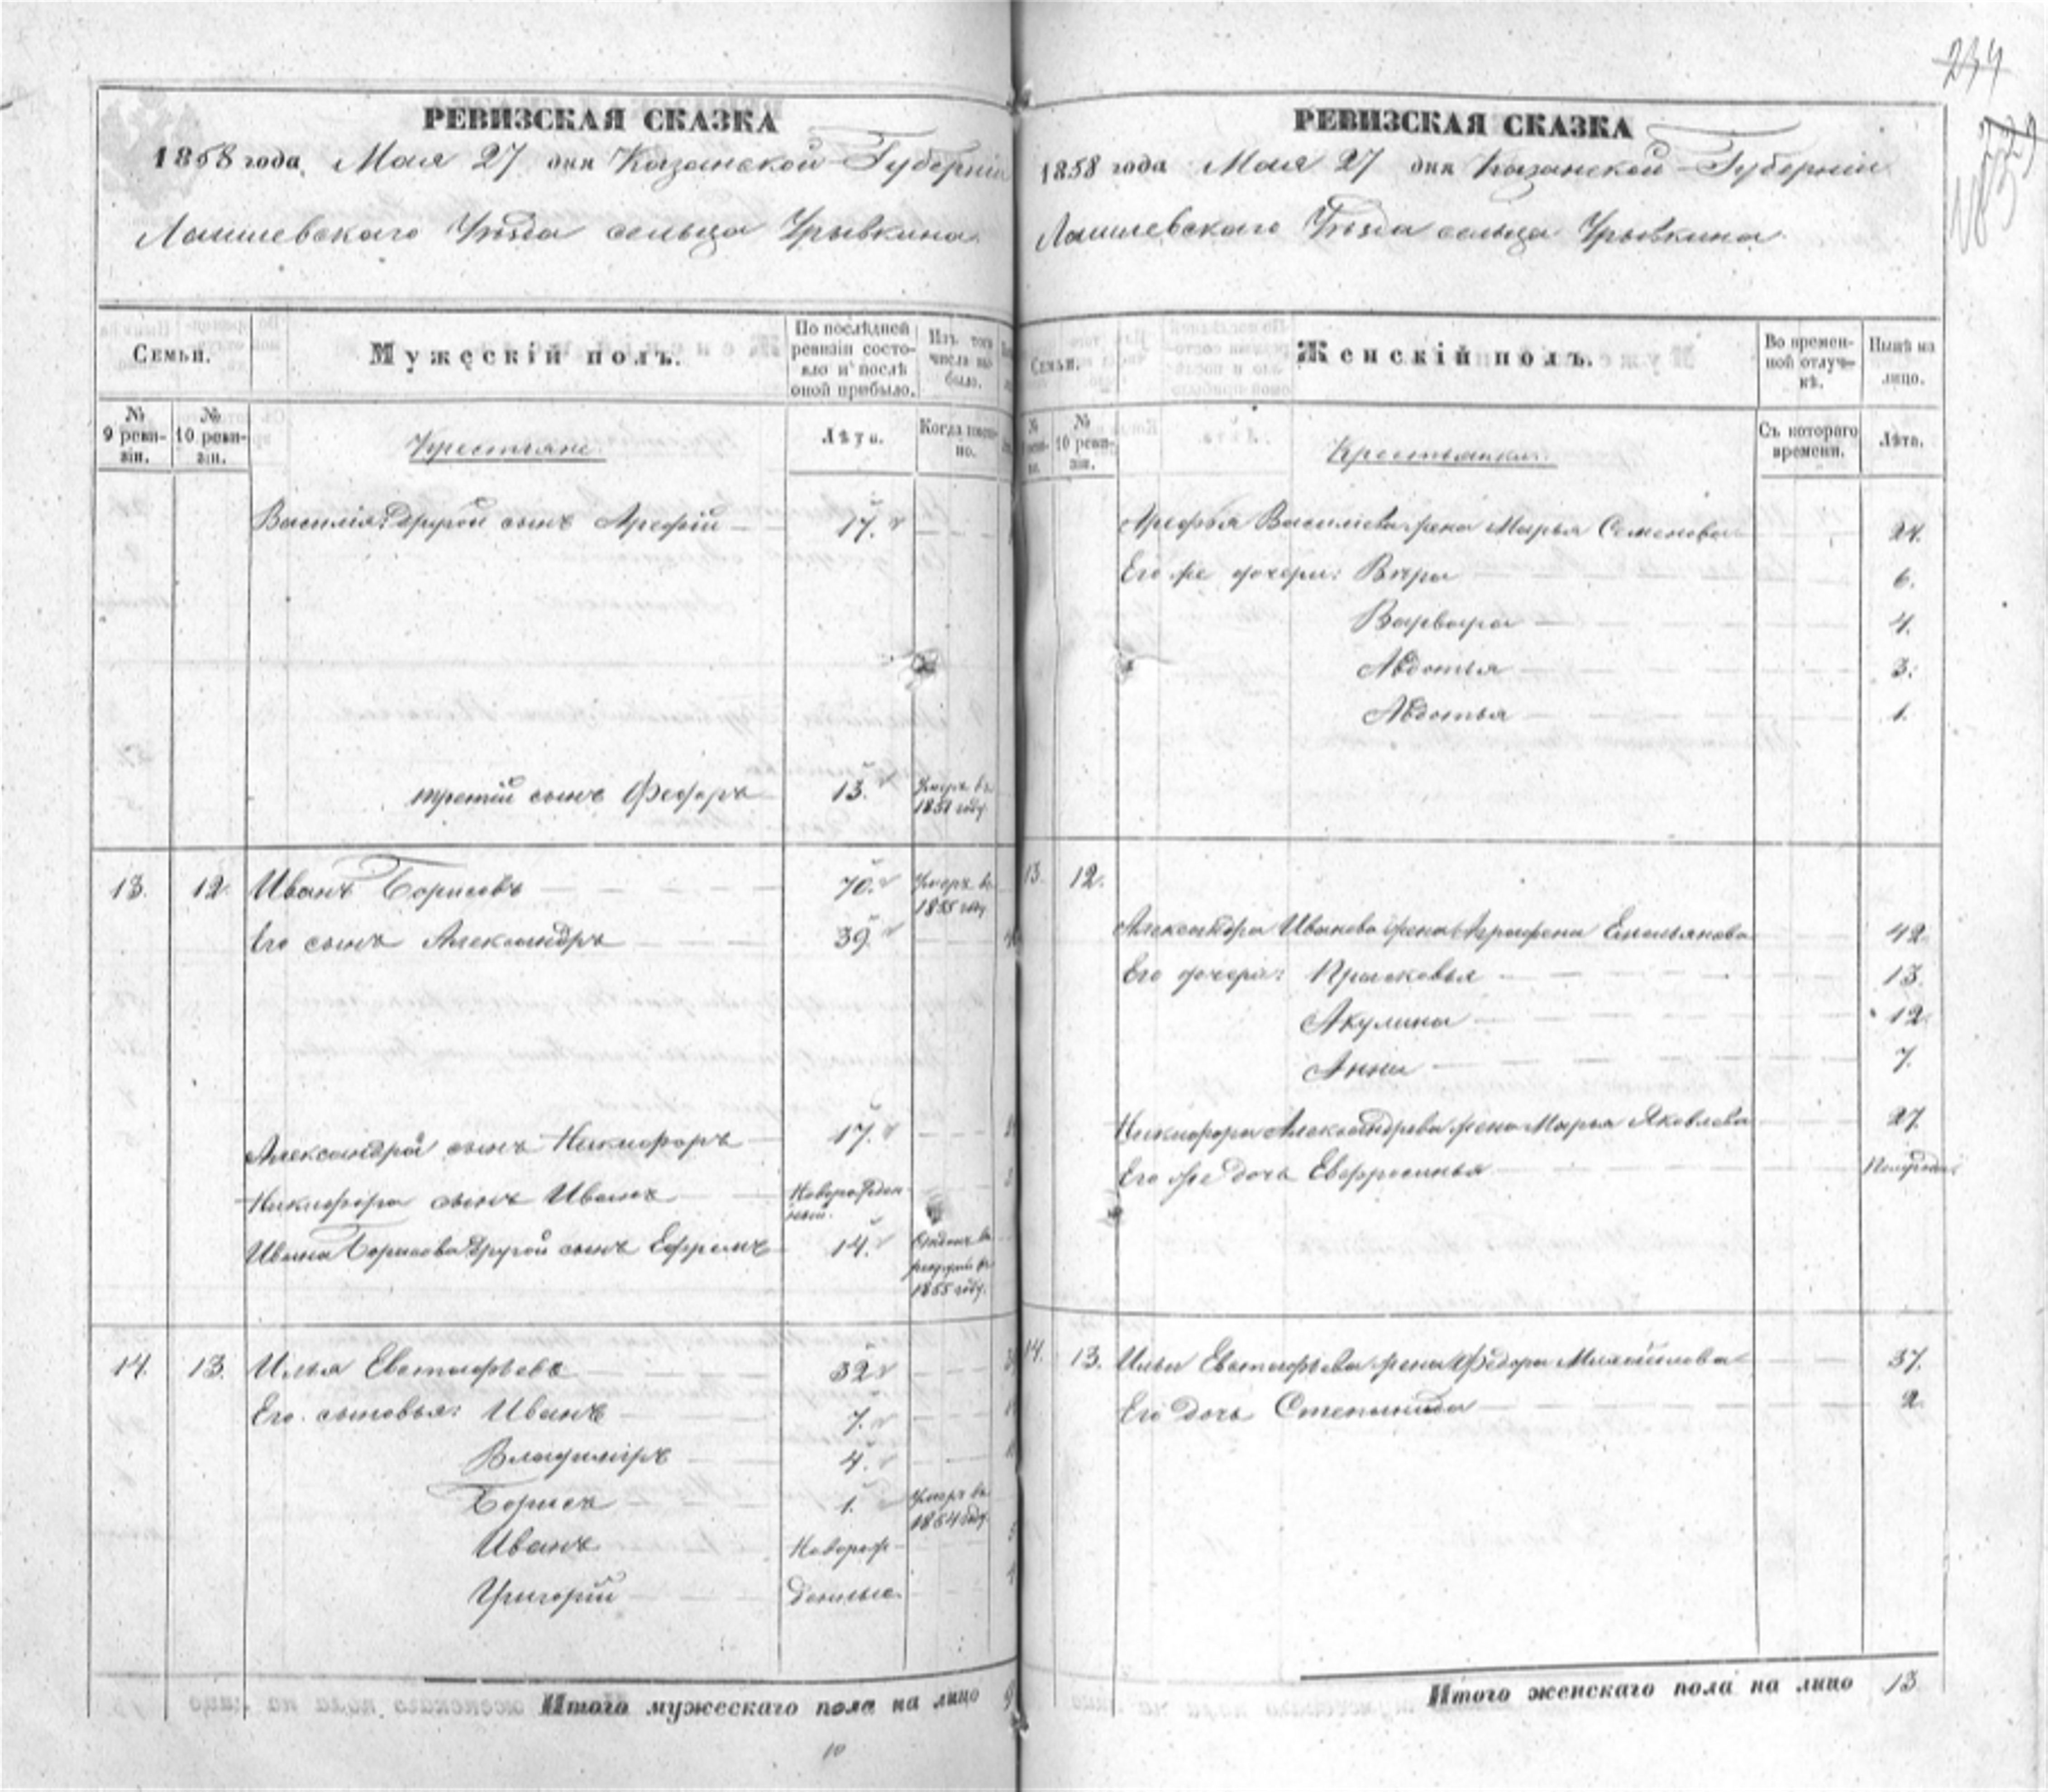 234
РЕВИЗСКАЯ СКАЗКА
1858 года, Мая 27 дня Казанской Губерніи
Лаишевскаго Уѣзда сельца Урывкина
Семьи.
Мужескій полъ.
По послѣдней ревизіи состояло и послѣ оной прибыло.
Изъ того числа выбыло.
№ 9 ревизіи.
№ 10 ревизіи.
Крестьяне.
Лѣта.
Когда именно.
Василія другой сынъ Арефій 17.
третій сынъ Федоръ 13. Умеръ въ 1851 году
13. 12. Иванъ Борисовъ 70. Умеръ въ 1855 году
Его сынъ Александръ 39.
Александра сынъ Никифоръ 17.
Никифора сынъ Иванъ Новорожденный.
Ивана Борисова другой сынъ Ефремъ 14. Отданъ въ рекруты въ 1855 году.
14. 13. Илья Евстафьевъ 32
Его сыновья: Иванъ 7.
Владиміръ 4.
Борисъ 1. Умеръ въ 1854 году
Иванъ Новорож-
Григорій денные.
Итого мужескаго пола на лицо 9
10
РЕВИЗСКАЯ СКАЗКА
1858 года Мая 27 дня Казанской Губерніи
Лаишевскаго Уѣзда сельца Урывкина
Семьи.
Женскій полъ.
Во временной отлучкѣ.
Нынѣ на лицо.
№ 10 ревизіи.
Крестьянки.
Съ котораго времени.
Лѣта.
Арефья Васильева жена Марья Семенова 24.
Его же дочери: Вѣра 6.
Варвара 4.
Авдотья 3.
Авдотья 1.
13. 12.
Александра Иванова жена Аграфена Емельянова 42.
Его дочери: Прасковья 13.
Акулина 12.
Анна 7.
Никифора Александрова жена Марья Яковлева 27.
Его же дочь Евфросинья Полугода
14. 13. Ильи Евстафьева жена Федора Михайлова 37.
Его дочь Степанида 2.
Итого женскаго пола на лицо 13